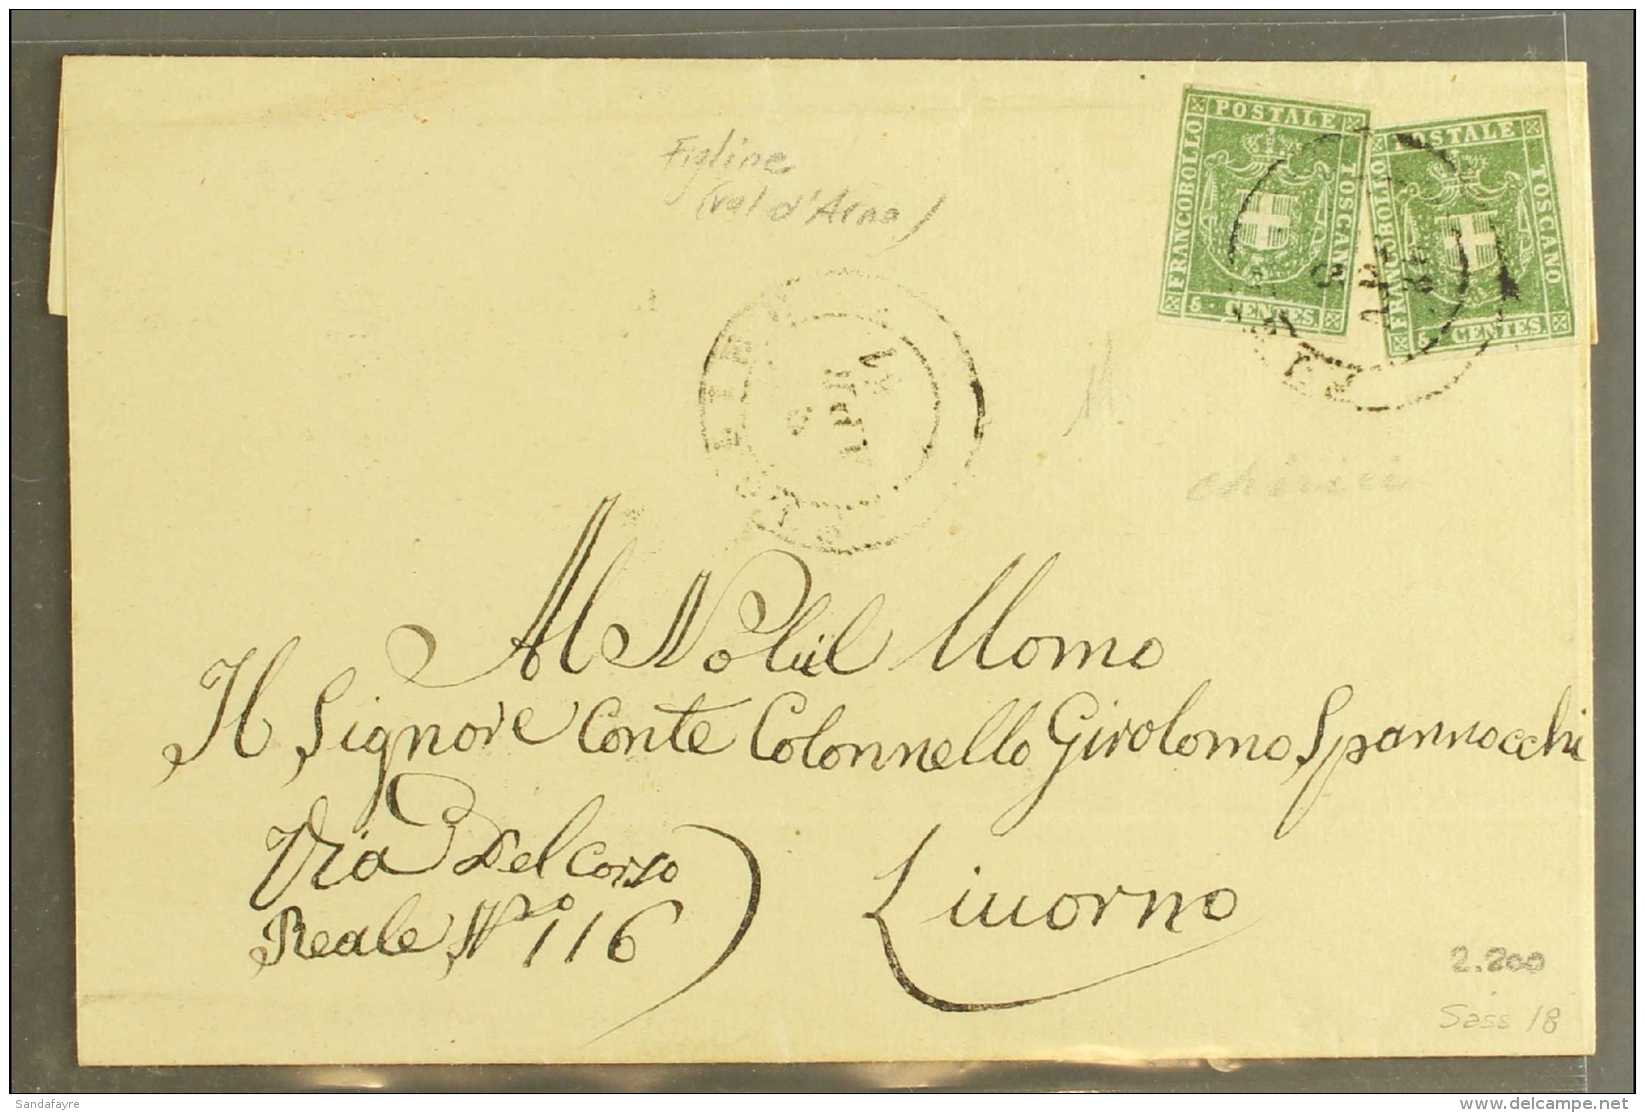 Figline
(val d'Arno)
FRANCOBOLLO
POSTALE
TOSCANO
5 · CENTES.
FRANCOBOLLO
POSTALE
TOSCANO
5 · CENTES.
Al Nobil Uomo
Il Signore Conte Colonnello Girolomo Spannocchi
Via Del Corso
Reale Nro 116
Livorno
2.200
Sass 18
Sandafayre
delcampe.net